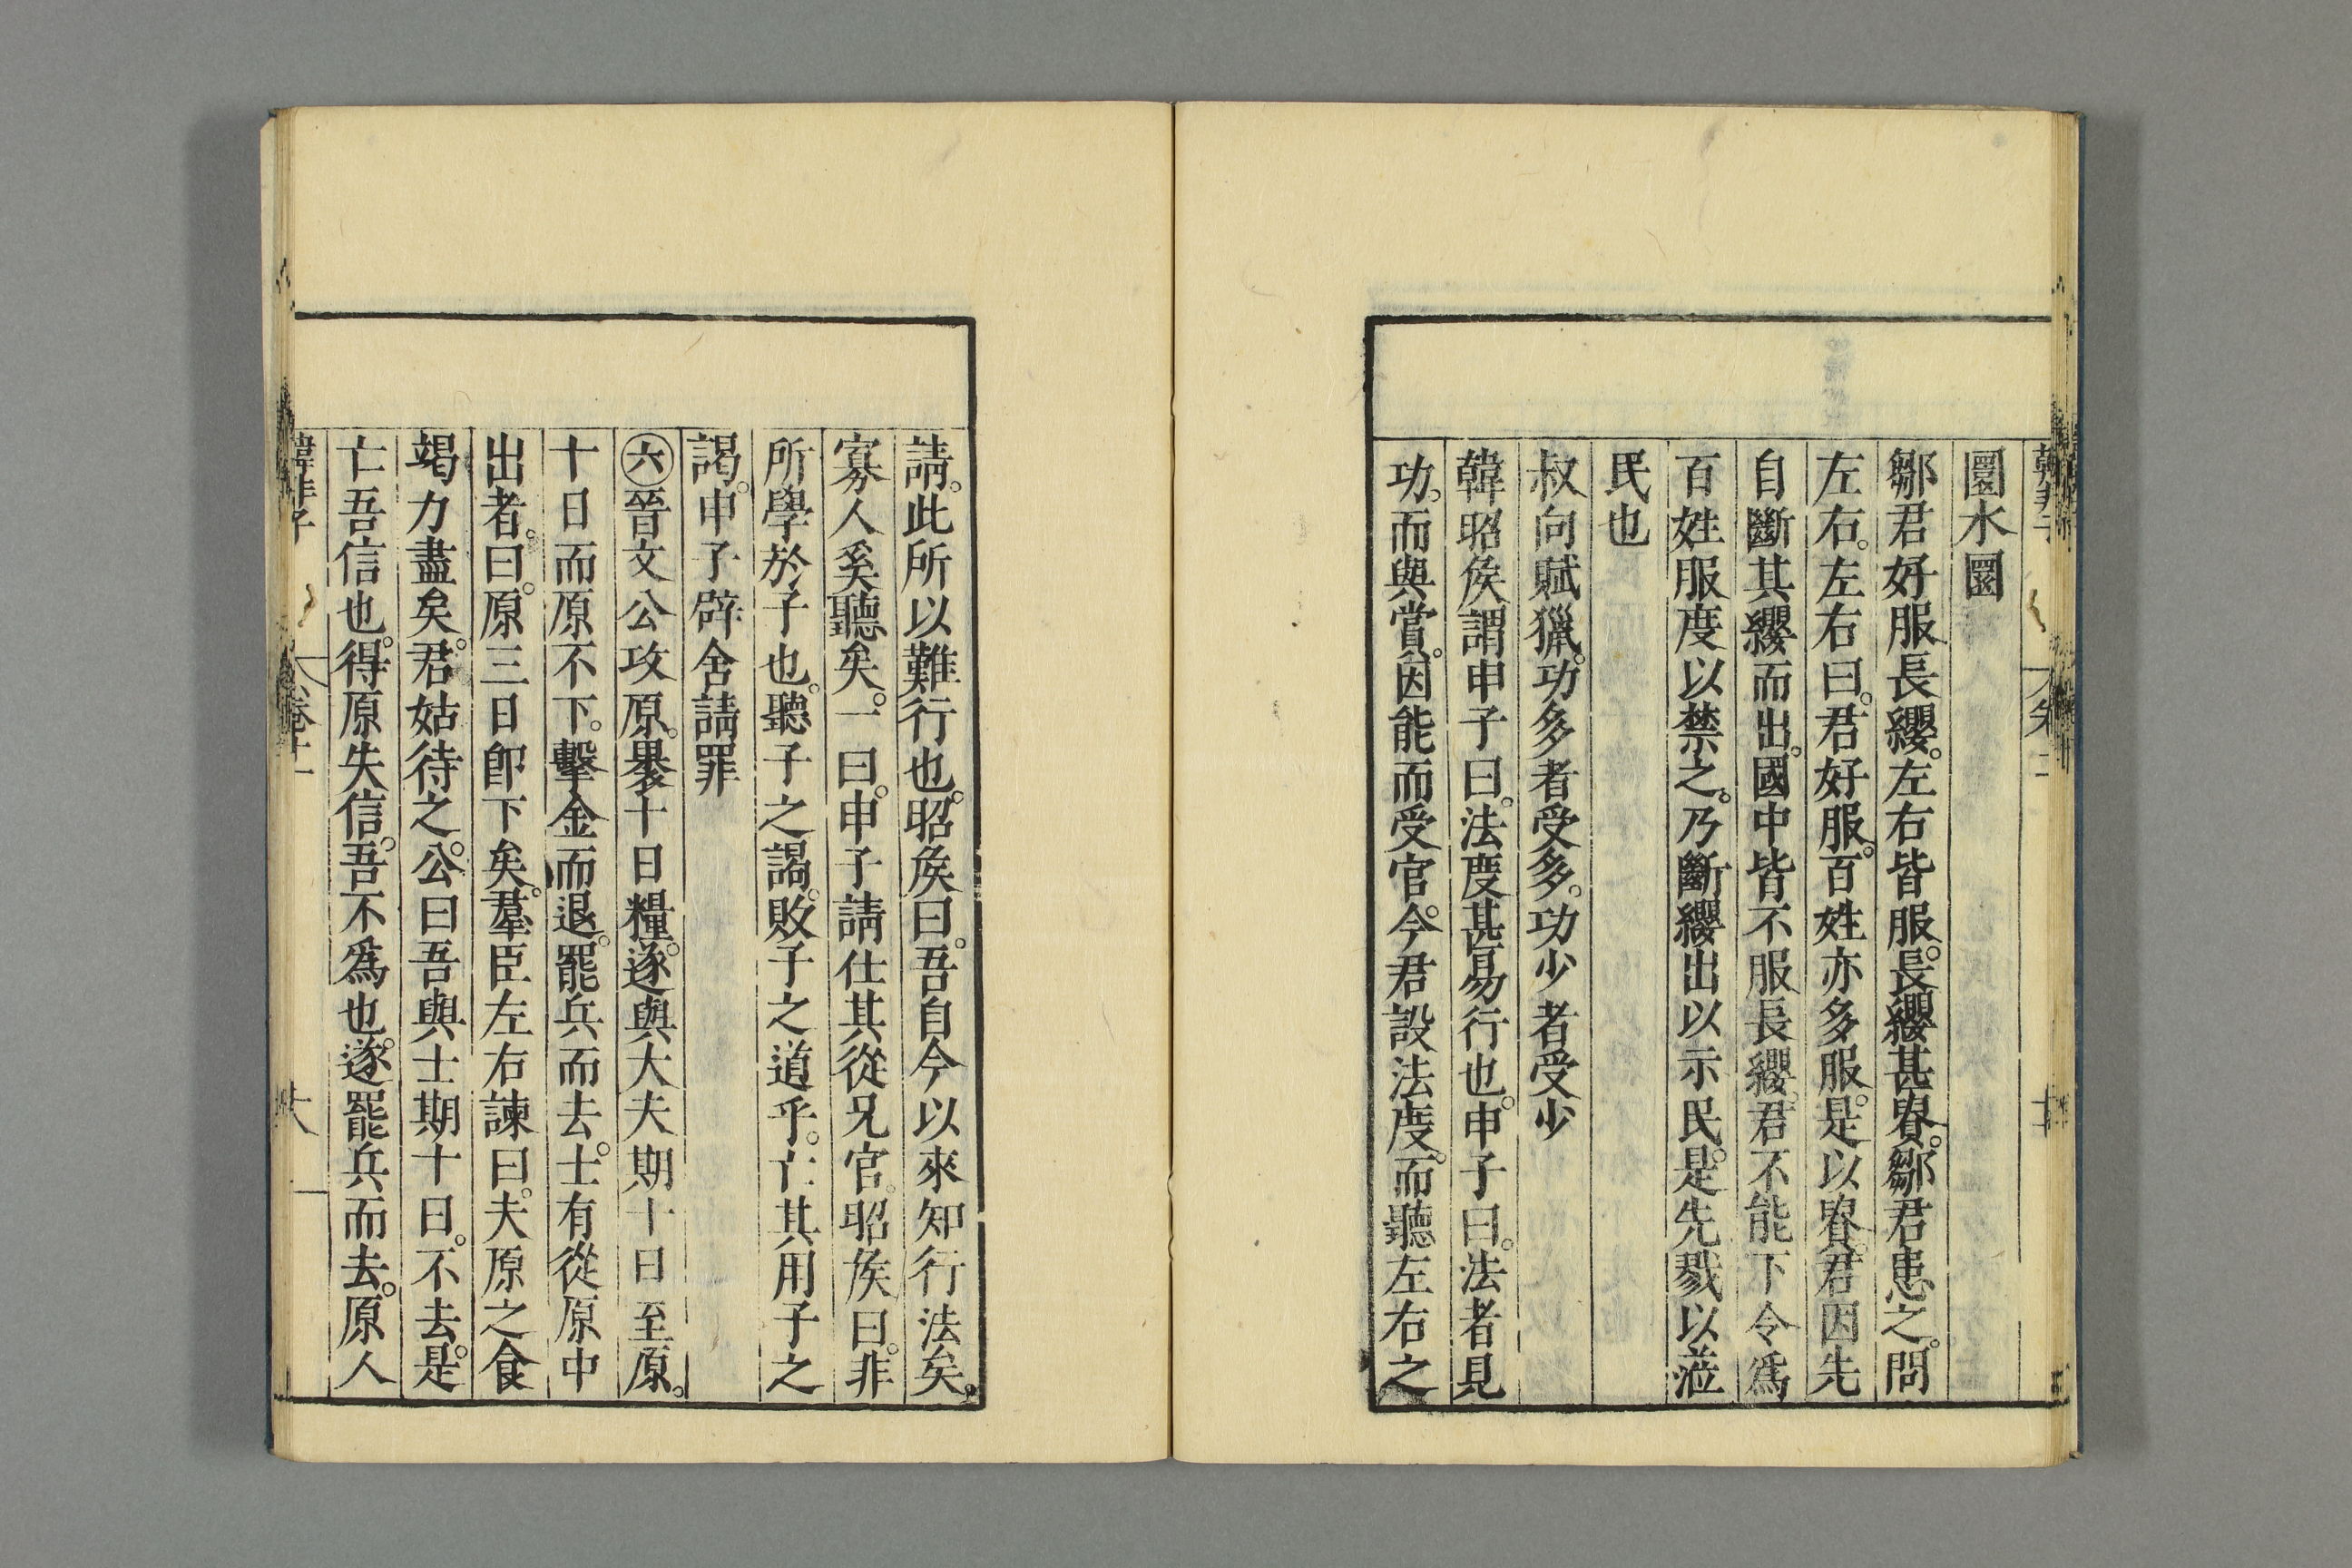 圜水圜
鄒君好服長纓。左右皆服。長纓甚貴。鄒君患之。問
左右。左右曰。君好服。百姓亦多服。是以貴。君因先
自斷其纓而出。國中皆不服長纓。君不能下令爲
百姓服度以禁之。乃斷纓出以示民。是先戮以蒞
民也
叔向賦獵。功多者受多。功少者受少
韓昭侯謂申子曰。法度甚易行也。申子曰。法者見
功。而與賞。因能而受官。今君設法度。而聽左右之
請。此所以難行也。昭侯曰。吾自今以來知行法矣。
寡人奚聽矣。一曰。申子請仕其從兄官。昭侯曰。非
所學於子也。聽子之謁。敗子之道乎。亡其用子之
謁。申子辟舍請罪
㊅晉文公攻原。裹十日糧。遂與大夫期十日至原。
十日而原不下。擊金而退。罷兵而去。士有從原中
出者。曰。原三日卽下矣。羣臣左右諫曰。夫原之食
竭力盡矣。君姑待之。公曰吾與士期十日。不去。是
亡吾信也。得原失信。吾不爲也。遂罷兵而去。原人
韓非子
卷十一